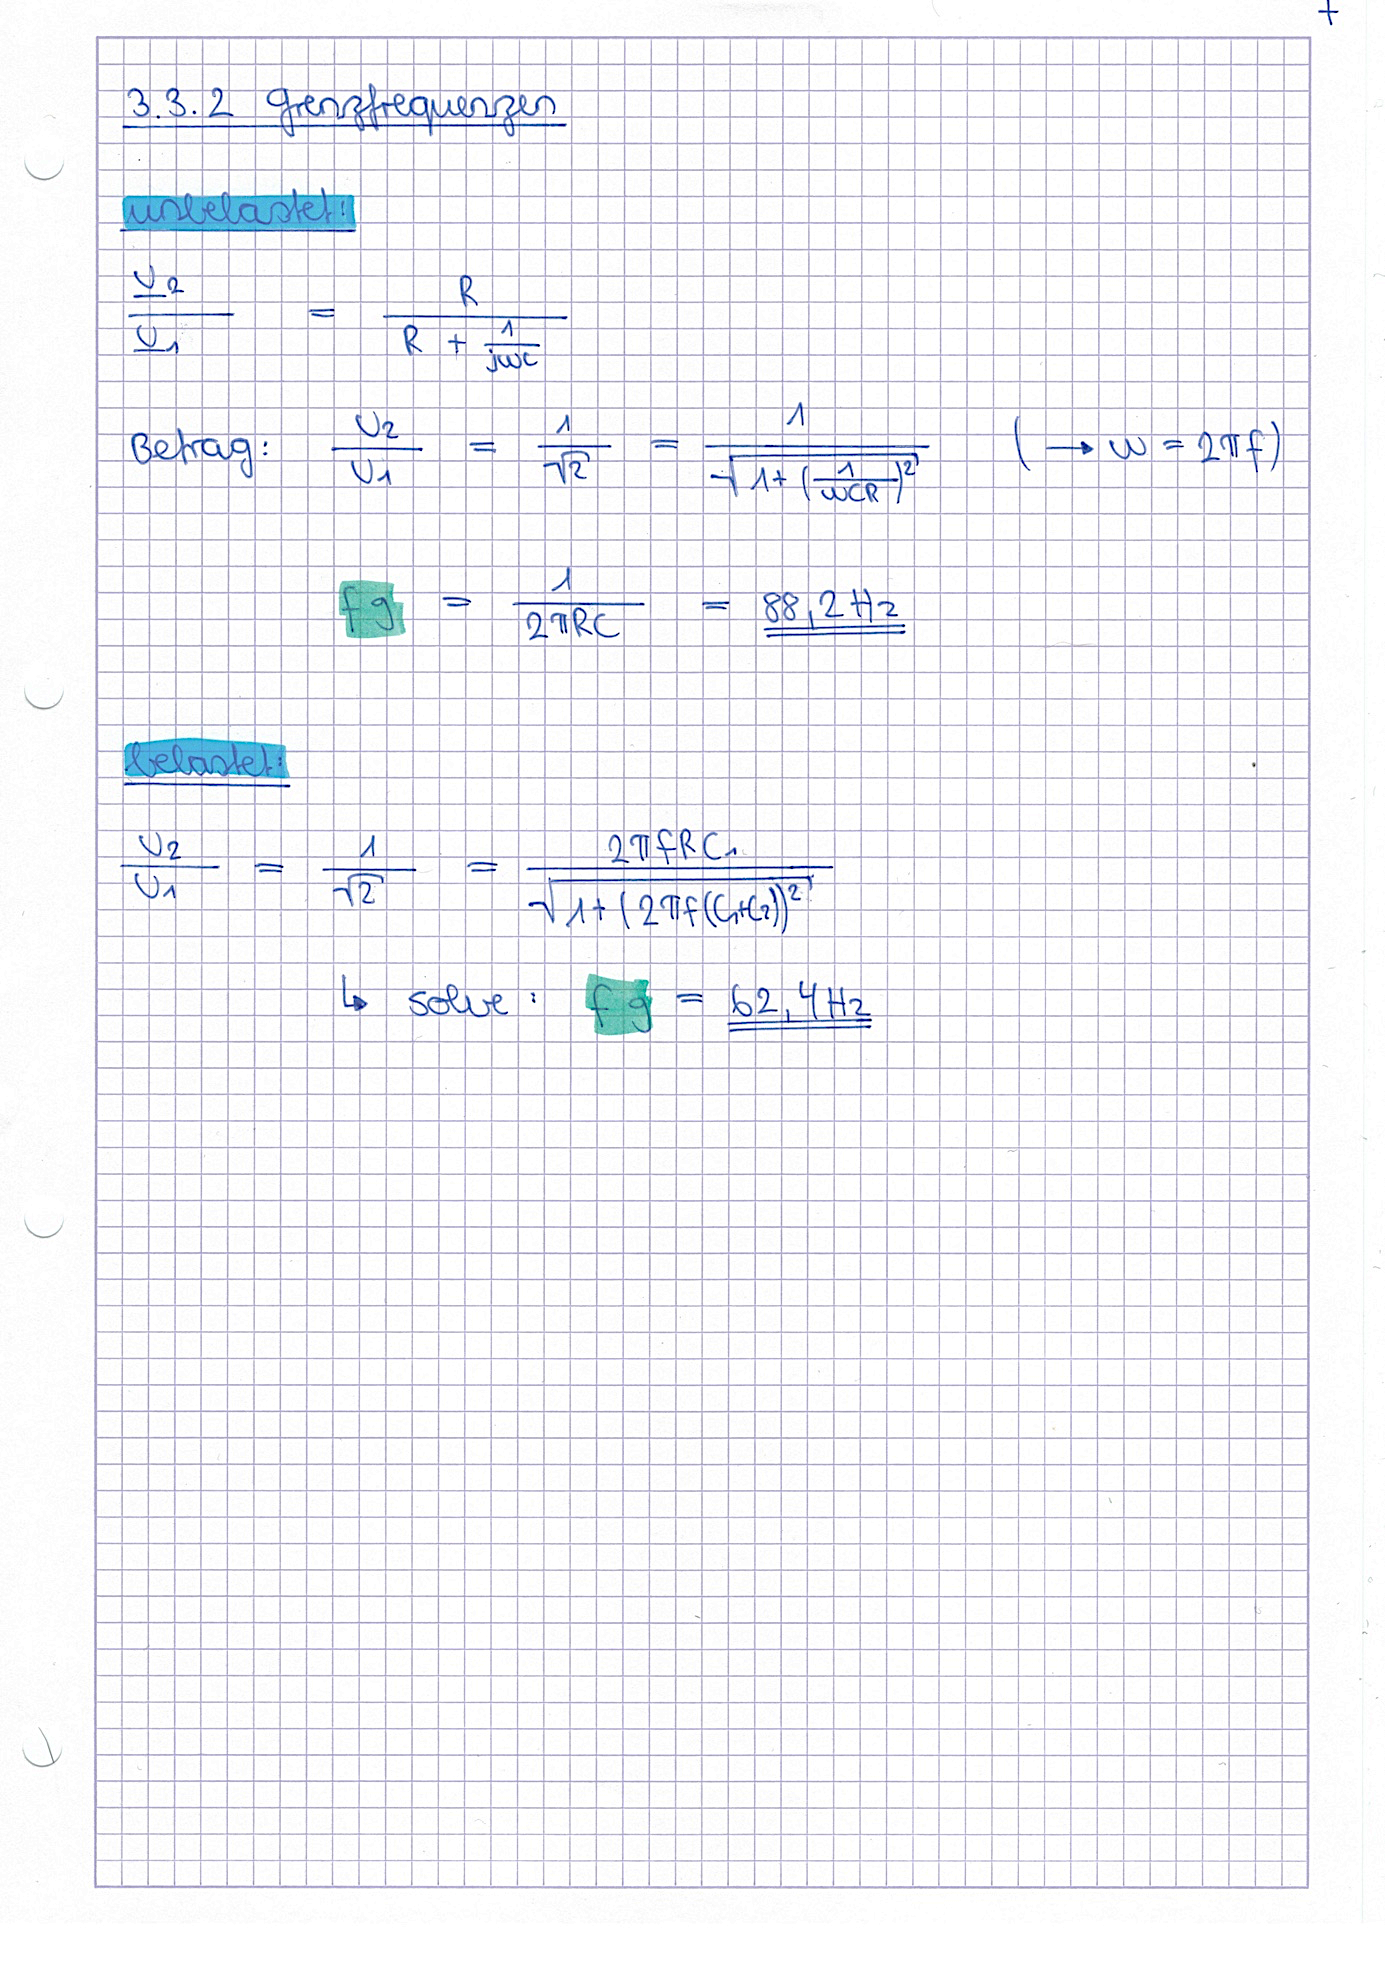 3.3.2 Grenzfrequenzen
unbelastet:
U2/U1 = R/(R + 1/(jωC))
Betrag: U2/U1 = 1/√2 = 1/√(1+(1/(ωCR))²) (→ ω = 2πf)
fg = 1/(2πRC) = 88,2Hz
belastet:
U2/U1 = 1/√2 = 2πfRC1/√(1+(2πf(C1+C2))²)
↳ solve: fg = 62,4Hz